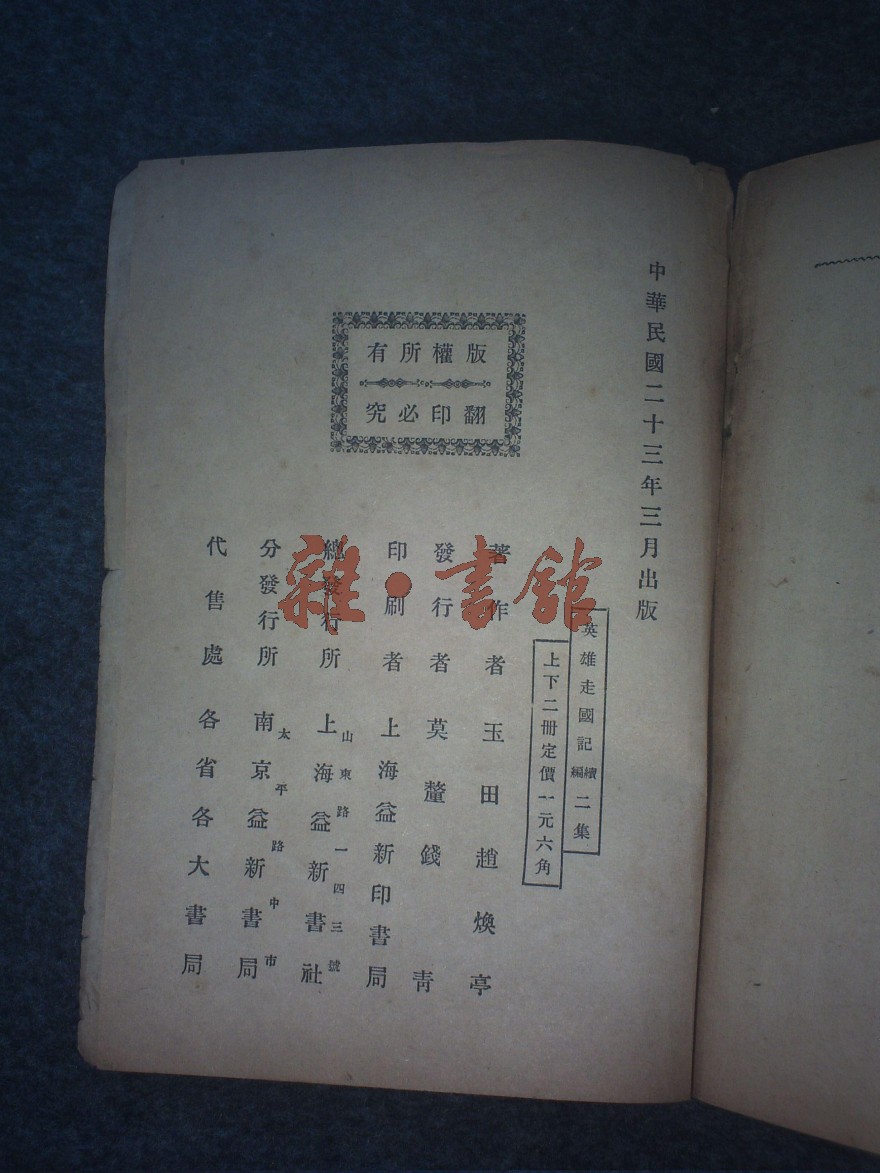 中華民國二十三年三月出版
英雄走國記續編二集
上下二冊定價一元六角
版權所有
翻印必究
著作者玉田趙煥亭
發行者莫釐錢青
印刷者上海益新印書局
總發行所上海益新書社
山東路一四三號
分發行所南京益新書局
太平路中市
代售處各省各大書局
雜·書館